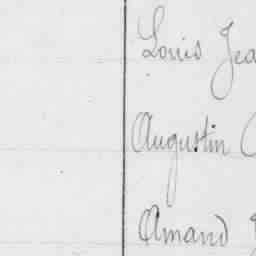 Louis Jea
Augustin C
Amand